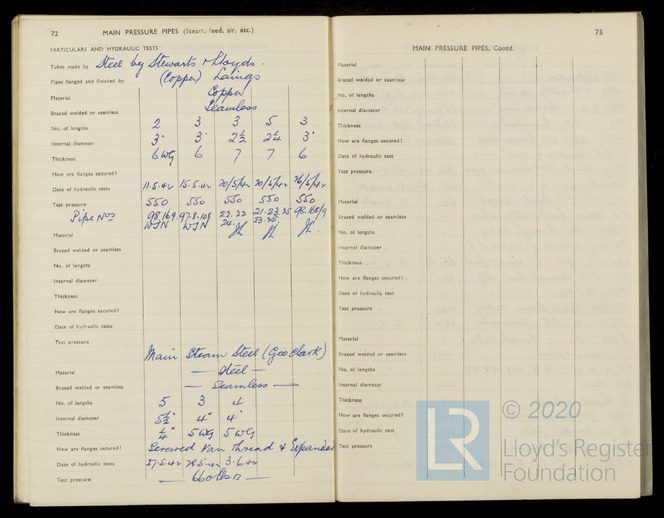 72 MAIN PRESSURE PIPES (Steam, feed, air, etc.)
PARTICULARS AND HYDRAULIC TESTS
Tubes made by Steel by Stewarts & Lloyds.
Pipes flanged and finished by (Copper) Laings
Material Copper
Brazed welded or seamless Seamless
No. of lengths 2 3 3 5 3
Internal diameter 3" 3" 2½ 2¼ 3"
Thickness 6 WG 6 7 7 6
How are flanges secured?
Date of hydraulic tests 11.5.42 15.5.42 20/5/42 20/5/42 26/5/42
Test pressure 550 550 550 550 550
Pipe Nos 98.169. 97.8.108 22.22 21.23.25 98.168/9
WJN WJN 24. 23.25.
Material
Brazed welded or seamless
No. of lengths
Internal diameter
Thickness
How are flanges secured?
Date of hydraulic tests
Test pressure
Main Steam Steel (Geo Clark)
Material — Steel —
Brazed welded or seamless — Seamless —
No. of lengths 5 3 4
Internal diameter 5½" 4" 4"
Thickness ¼" 5 WG 5 WG
How are flanges secured? Screwed Van Thread & Expanded
Date of hydraulic tests 27.5.42 28.5.42 3.6.42
Test pressure — 660 lbs □" —
73
MAIN PRESSURE PIPES, Contd.
Material
Brazed welded or seamless
No. of lengths
Internal diameter
Thickness
How are flanges secured?
Date of hydraulic test
Test pressure
Material
Brazed welded or seamless
No. of lengths
Internal diameter
Thickness
How are flanges secured?
Date of hydraulic test
Test pressure
Material
Brazed welded or seamless
No. of lengths
Internal diameter
Thickness
How are flanges secured?
Date of hydraulic test
Test pressure
LR
© 2020
Lloyd's Register
Foundation